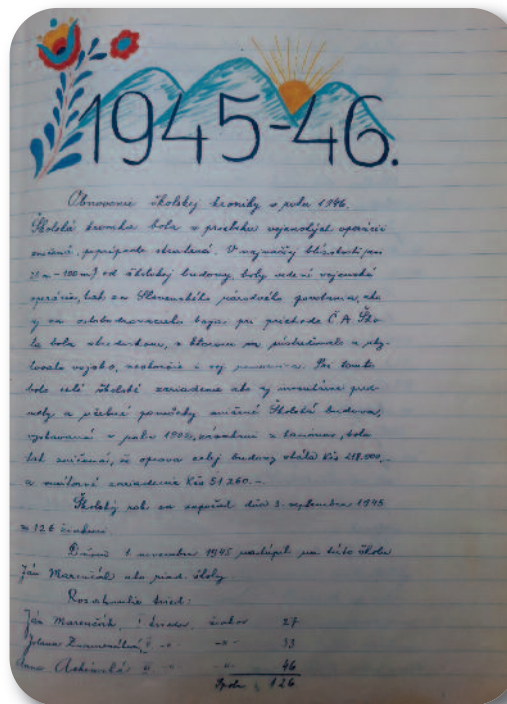 1945-46.
Obnovenie školskej kroniky v roku 1946.
Školská kronika bola v priebehu vojenských operácií
zničená, poprípade stratená. V najväčšej blízkosti
25 m - 100 m) od školskej budovy, boly vedené vojenské
operácie, tak za Slovenského národného povstania, ako
aj za oslobodzovacieho boja pri príchode Č. A. Ško-
la bola
vojsko,
Pri tomto
bolo celé školské zariadenie ako aj inventárne pred-
mety a učebné pomôcky zničené. Školská budova,
vystavaná v roku
bola
tak zničená, že oprava celej budovy stála Kčs 218.000,-
a vnútorné zariadenie Kčs 51.260.-
Školský rok sa započal dňa 3. septembra 1945
so 126 žiakmi.
Dňom 1. novembra 1945 nastúpil na túto školu
Ján Marenčák ako riad. školy.
Rozdelenie tried:
Ján Marenčák, žiakov 27
Jolana
Anna 46
Spolu 126